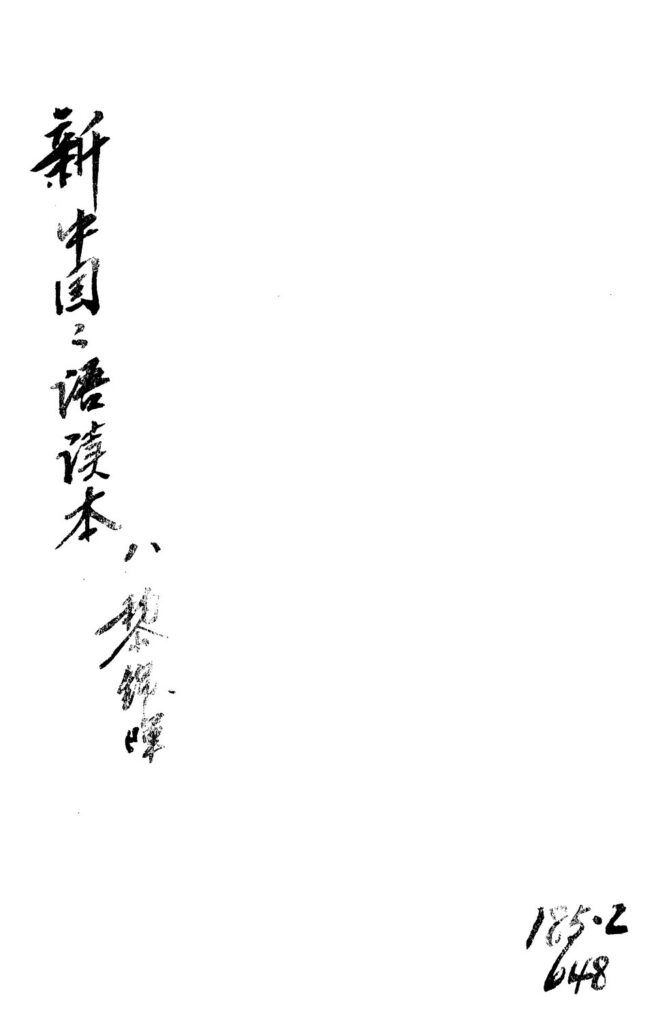 新中国〻语读本
八
黎锦晖
185·2
648